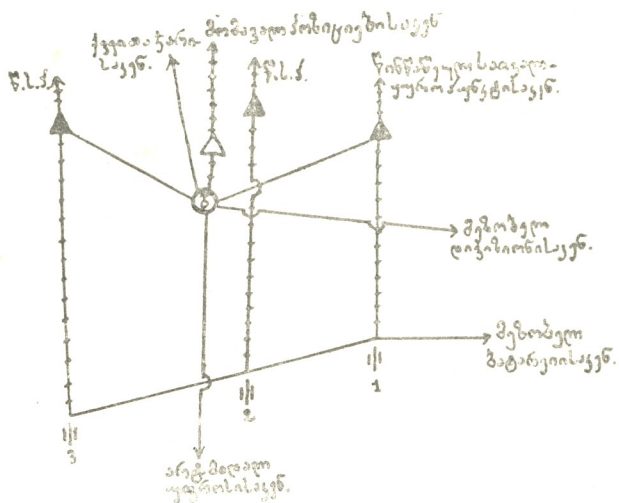 ქვეითა ჯარი-
საკენ.
მომავალ პოზიციებისაკენ
წ.ს.პ.
წ.ს.პ.
წინწაწეულ სათვალ-
ყურო პუნქტისაკენ.
მეზობელ
დივიზიონისაკენ.
მეზობელ
ბატარეიისაკენ.
1
2
3
არტ. მთავარ
უფროსისაკენ.